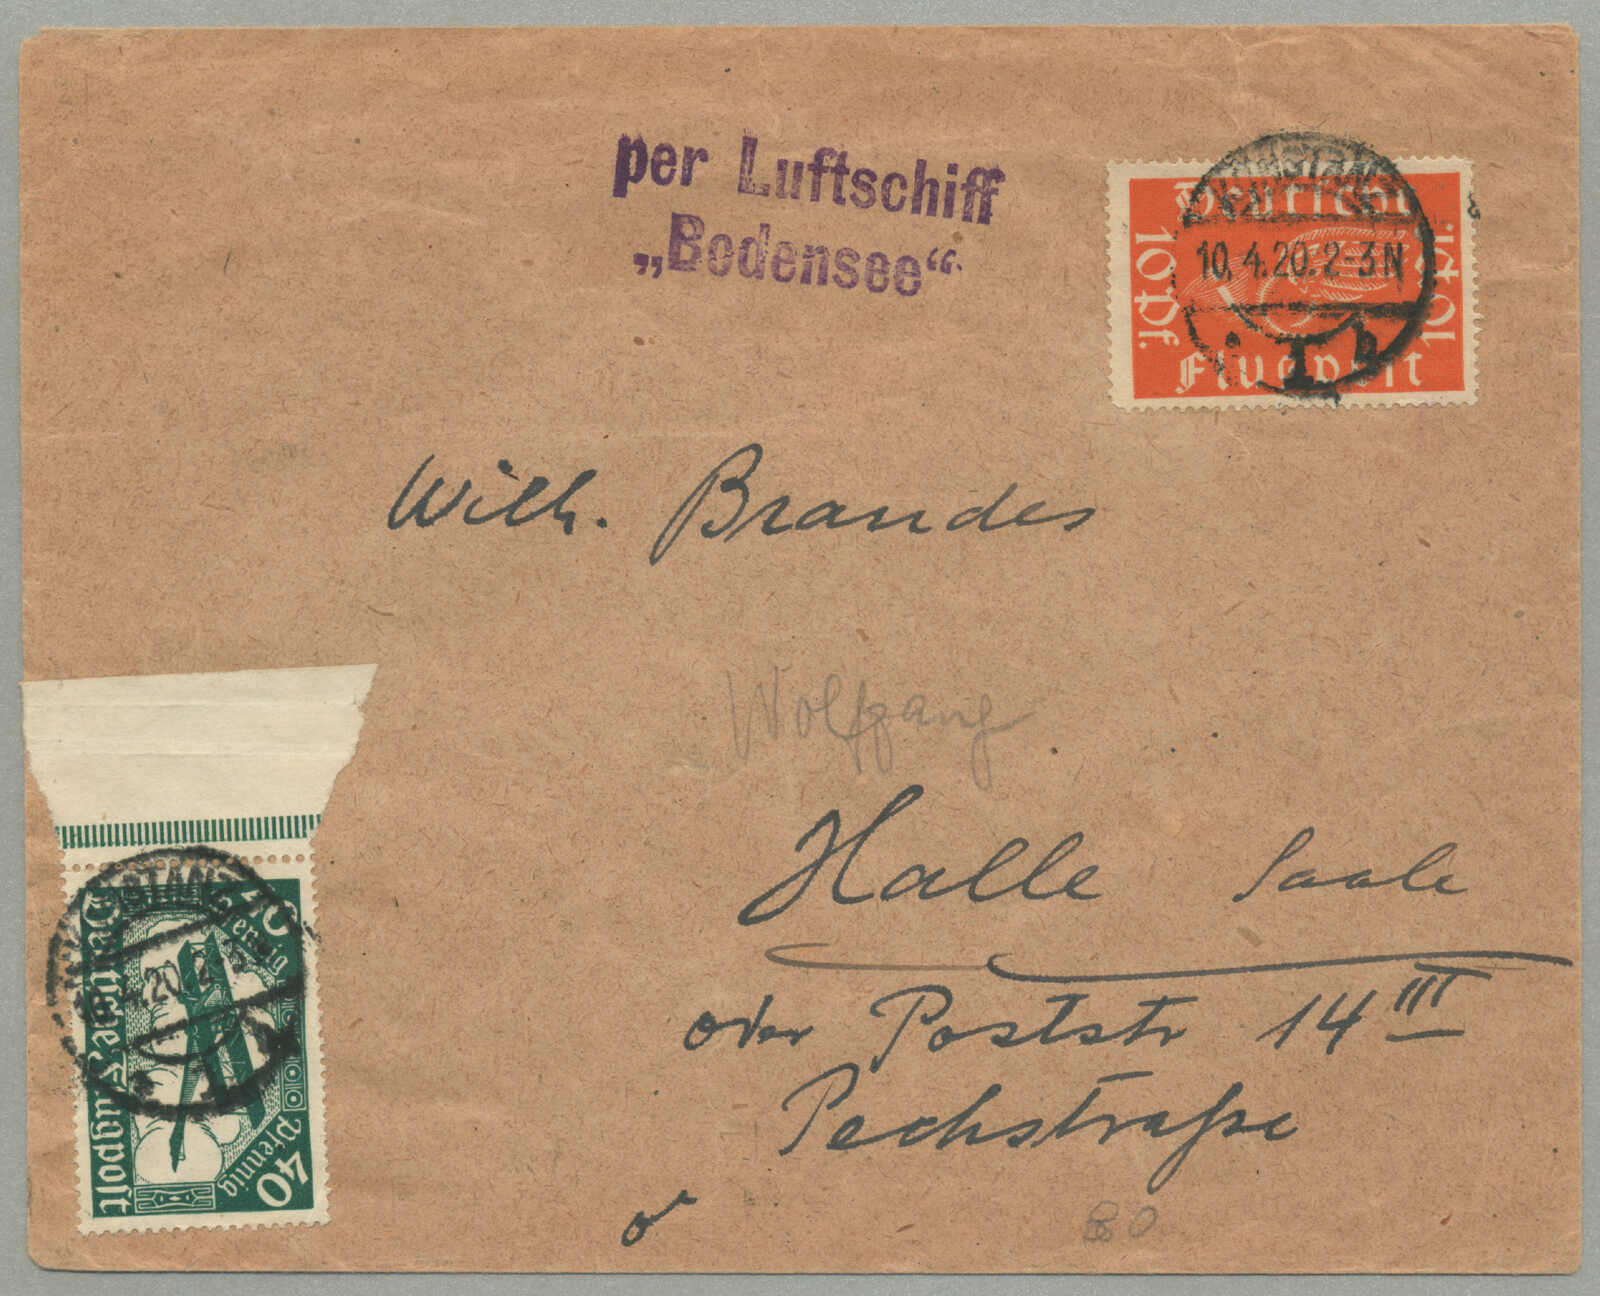 per Luftschiff
„Bodensee“
KONSTANZ
10.4.20.2-3N
1 b
Deutsche
10 Pf.
10 Pf.
Flugpost
Wilh. Brandes
Wolfgang
Halle Saale
oder Poststr 14 III
Pechstraße
KONSTANZ
40
Pfennig
Deutsche Flugpost
Pfennig
40
80